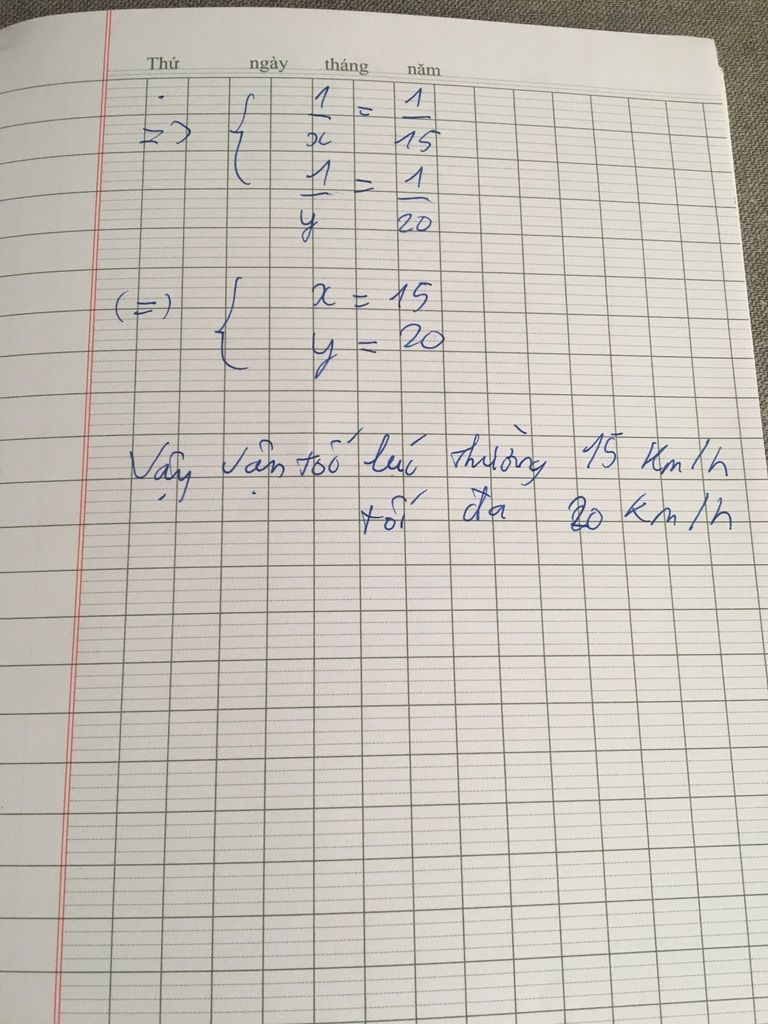 Thứ ngày tháng năm
=> { 1/x = 1/15
1/y = 1/20
(=) { x = 15
y = 20
Vậy vận tốc lúc thường 15 Km/h
tối đa 20 Km/h